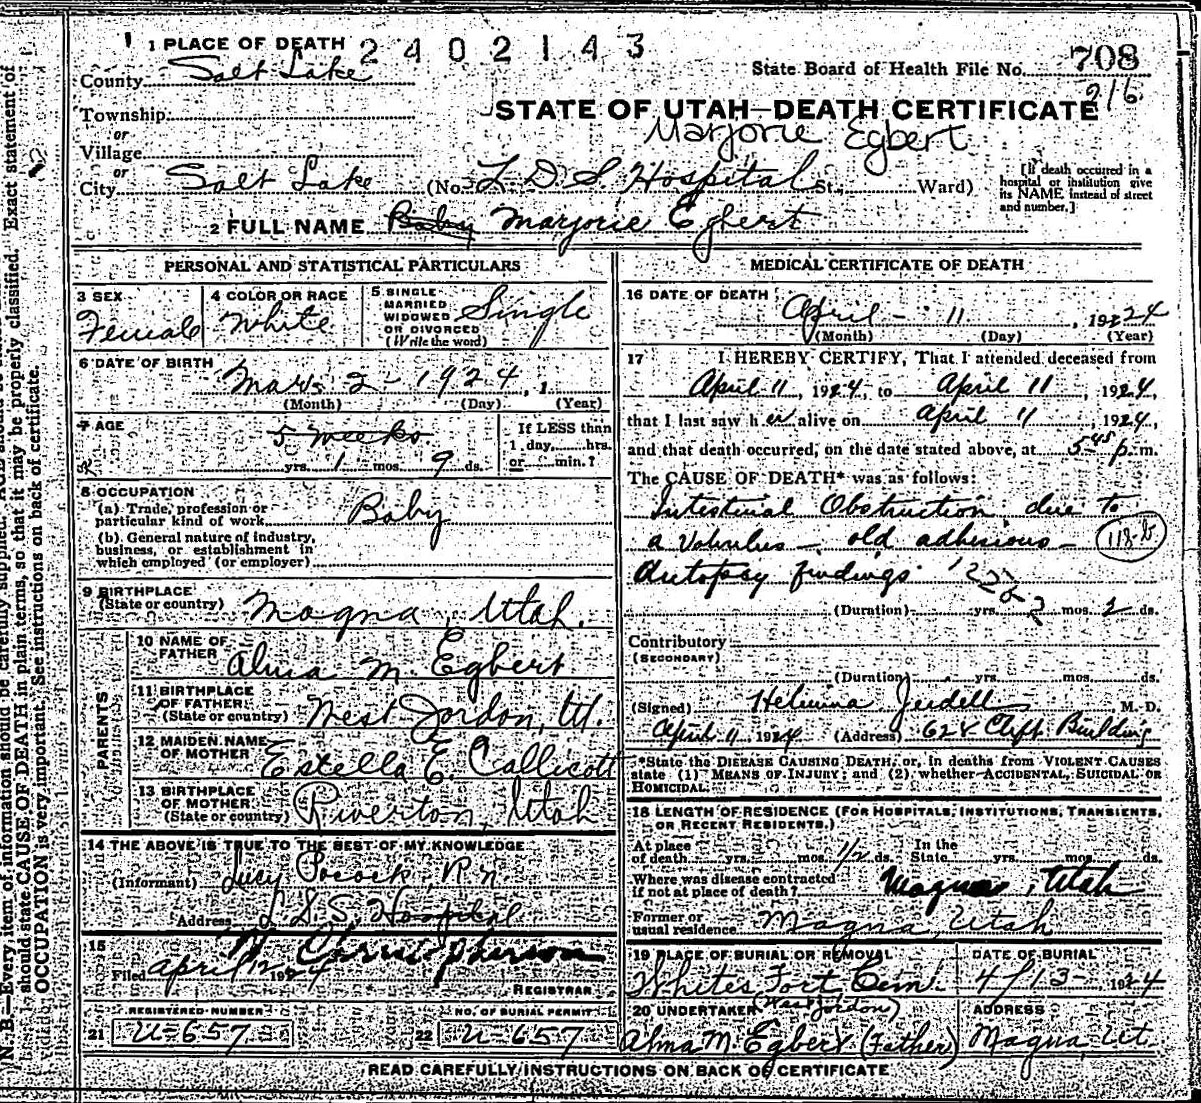 1 PLACE OF DEATH 2 4 0 2 1 4 3
County Salt Lake
State Board of Health File No. 708
216
Township
or
Village
or
City Salt Lake (No. L. D. S. Hospital St., Ward)
STATE OF UTAH—DEATH CERTIFICATE
Marjorie Egbert
[If death occurred in a
hospital or institution give
its NAME instead of street
and number.]
2 FULL NAME Baby Marjorie Egbert
PERSONAL AND STATISTICAL PARTICULARS
3 SEX
Female
4 COLOR OR RACE
White
5 SINGLE
MARRIED
WIDOWED
OR DIVORCED
(Write the word)
Single
6 DATE OF BIRTH
Mar. 2 - 1924, 1
(Month) (Day) (Year)
7 AGE
5 weeks
yrs. 1 mos. 9 ds.
If LESS than
1 day, hrs.
or min.?
8 OCCUPATION
(a) Trade, profession or
particular kind of work Baby
(b) General nature of industry,
business, or establishment in
which employed (or employer)
9 BIRTHPLACE
(State or country) Magna, Utah.
PARENTS
10 NAME OF
FATHER Alma M. Egbert
11 BIRTHPLACE
OF FATHER
(State or country) West Jordon, Ut.
12 MAIDEN NAME
OF MOTHER Estella E. Callicott
13 BIRTHPLACE
OF MOTHER
(State or country) Riverton, Utah
14 THE ABOVE IS TRUE TO THE BEST OF MY KNOWLEDGE
(Informant) Lucy Pocock, R.N.
Address L. D. S. Hospital
15
Filed April 12 1924 Christopherson
REGISTRAR
REGISTERED NUMBER
21 U-657
NO. OF BURIAL PERMIT
22 U-657
MEDICAL CERTIFICATE OF DEATH
16 DATE OF DEATH
April - 11, 1924
(Month) (Day) (Year)
17 I HEREBY CERTIFY, That I attended deceased from
April 11, 1924, to April 11, 1924,
that I last saw her alive on April 11, 1924,
and that death occurred, on the date stated above, at 5 45 p.m.
The CAUSE OF DEATH* was as follows:
Intestinal Obstruction due to
a Volvulus - old adhesions - 118-b
Autopsy findings
(Duration) yrs. mos. 2 ds.
Contributory
(SECONDARY)
(Duration) yrs. mos. ds.
(Signed) Helmina Jeidell M. D.
April 11, 1924 (Address) 624 Clift Building
*State the DISEASE CAUSING DEATH, or, in deaths from VIOLENT CAUSES
state (1) MEANS OF INJURY; and (2) whether ACCIDENTAL, SUICIDAL OR
HOMICIDAL.
18 LENGTH OF RESIDENCE (FOR HOSPITALS, INSTITUTIONS, TRANSIENTS,
OR RECENT RESIDENTS.)
At place
of death yrs. mos. 1/2 ds. In the
State yrs. mos. ds.
Where was disease contracted
if not at place of death? Magna, Utah
Former or
usual residence Magna, Utah
19 PLACE OF BURIAL OR REMOVAL
Whites Fort Cem.
(West Jordon)
DATE OF BURIAL
4/13-1924
20 UNDERTAKER
Alma M. Egbert (Father)
ADDRESS
Magna, Ut.
READ CAREFULLY INSTRUCTIONS ON BACK OF CERTIFICATE
N. B.—Every item of information should be carefully supplied. AGE should be
should state CAUSE OF DEATH in plain terms, so that it may be properly classified. Exact statement of
OCCUPATION is very important. See instructions on back of certificate.